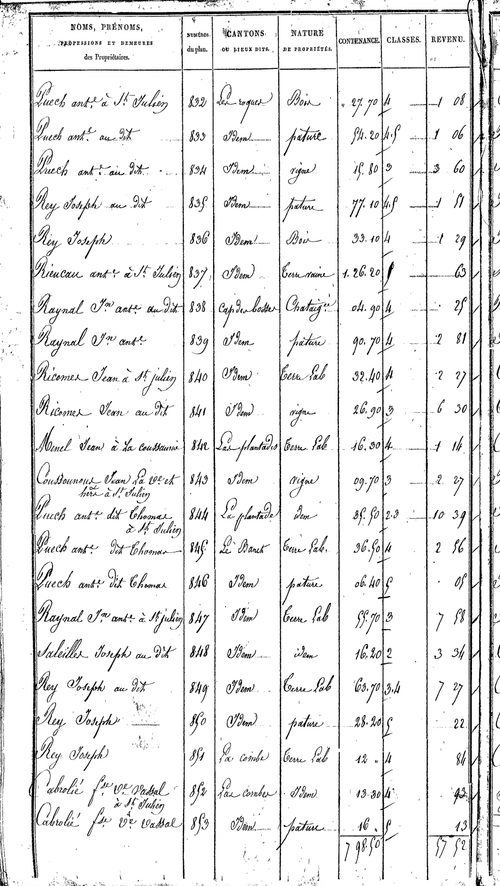 NOMS, PRÉNOMS, PROFESSIONS ET DEMEURES des Propriétaires. NUMÉROS du plan. CANTONS OU LIEUX DITS. NATURE DE PROPRIÉTÉS. CONTENANCE. CLASSES. REVENU.
Puech ant.e à St Julien 832 Les roques Bois 27.70 4 1 08
Puech ant.e au dit 833 Idem pature 54.20 4.5 1 06
Puech ant.e au dit 834 Idem vigne 15.80 3 3 60
Rey Joseph au dit 835 Idem pature 77.10 4.5 1 51
Rey Joseph 836 Idem Bois 33.10 4 1 29
Rieucau ant.e à St Julien 837 Idem Terre vaine 1.26.20 63
Raynal J.n ant.e au dit 838 Cap des bosses Chataig.e 04.90 4 25
Raynal J.n ant.e 839 Idem pature 90.70 4 2 81
Ricomes Jean à St julien 840 Idem Terre Lab 32.40 4 2 27
Ricomes Jean au dit 841 Idem vigne 26.90 3 6 30
Menel Jean à La 842 Las plantades Terre Lab 16.30 4 1 14
Coussounoux Jean La v.e et 843 Idem vigne 09.70 3 2 27
à St Julien
Puech ant.e dit Thomas 844 La plantade idem 35.50 2.3 10 39
à St Julien
Puech ant.e dit Thomas 845 Le Banet Terre Lab. 36.50 4 2 56
Puech ant.e dit Thomas 846 Idem pature 06.40 5 05
Raynal J.n ant.e à St julien 847 Idem Terre Lab 55.70 3 7 58
Saleilles Joseph au dit 848 Idem idem 16.20 2 3 34
Rey Joseph au dit 849 Idem Terre Lab 63.70 3.4 7 27
Rey Joseph 850 Idem pature 28.20 5 22
Rey Joseph 851 La combe Terre Lab 12 „ 4 84
Cabrolié f.se v.e Vassal 852 Las combes Idem 13.30 4 93
à St Julien
Cabrolié f.se v.e Vassal 853 Idem pature 16 „ 5 13
7 98.50 57 52